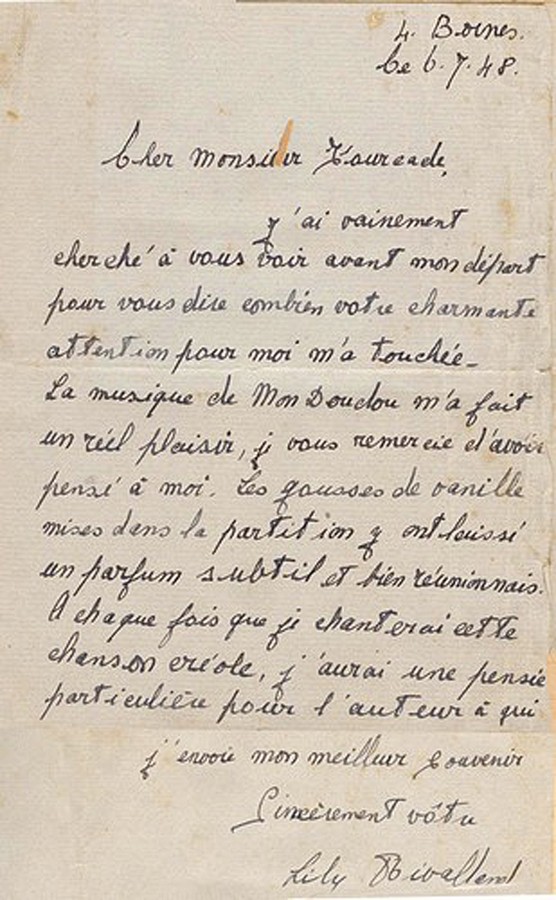 4. Bornes.
Le 6.7.48.
Cher Monsieur Fourcade,
j'ai vainement
cherché à vous voir avant mon départ
pour vous dire combien votre charmante
attention pour moi m'a touchée_
La musique de Mon Doudou m'a fait
un réel plaisir, je vous remercie d'avoir
pensé à moi. Les gousses de vanille
mises dans la partition y ont laissé
un parfum subtil et bien réunionnais.
A chaque fois que je chanterai cette
chanson créole, j'aurai une pensée
particulière pour l'auteur à qui
j'envoie mon meilleur souvenir
Sincèrement vôtre
Lily Rivalland